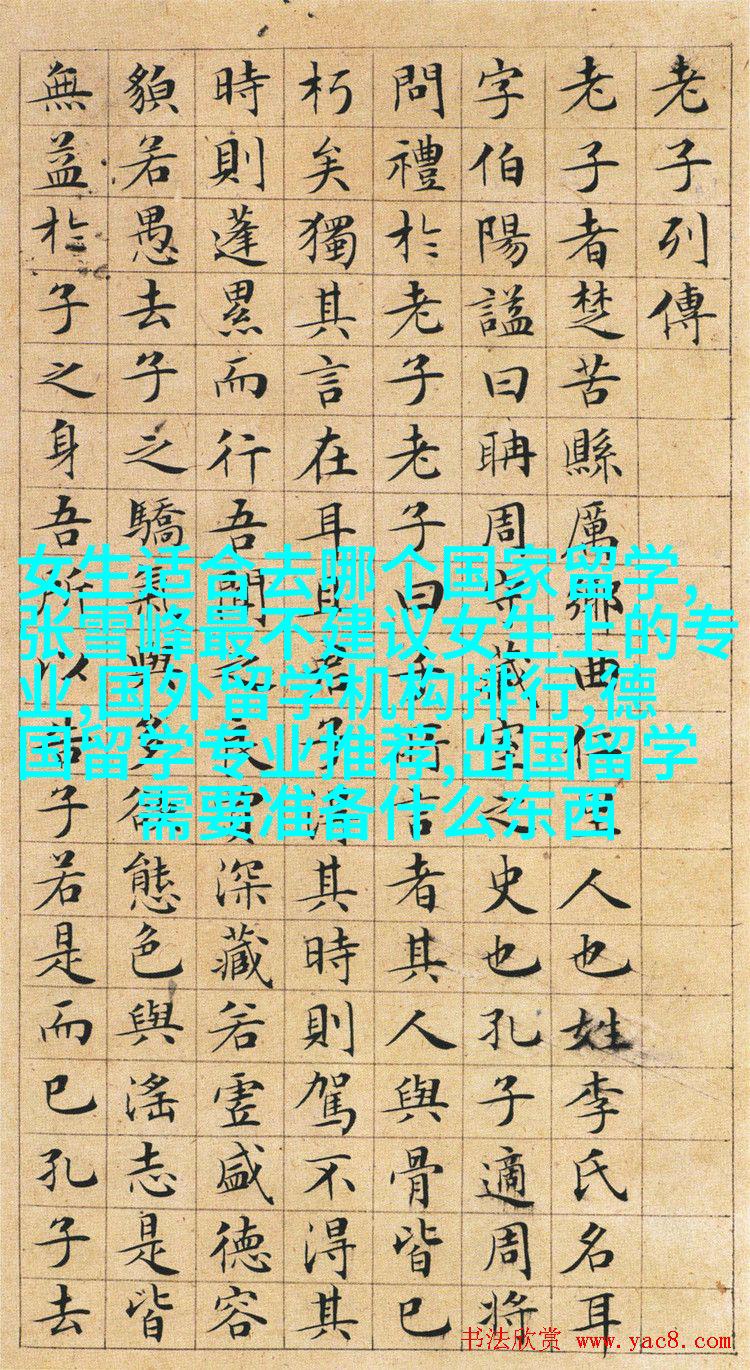 老子列傳
老子者楚苦縣厲鄉曲仁里人也姓李氏名耳
字伯陽謚曰聃周守藏室之史也孔子適周將
問禮於老子老子曰子所言者其人與骨皆已
朽矣獨其言在耳且君子淂其時則駕不淂其
時則蓬累而行吾聞之良賈深藏若虛盛德容
䫉若愚去子之驕氣與多欲態色與滛志是皆
無益於子之身吾所以告子若是而已孔子去
女生适合去哪个国家留学,
张雪峰最不建议女生上的专
业,国外留学机构排行,德
国留学专业推荐,出国留学
需要准备什么东西
书法欣赏 www.yac8.com